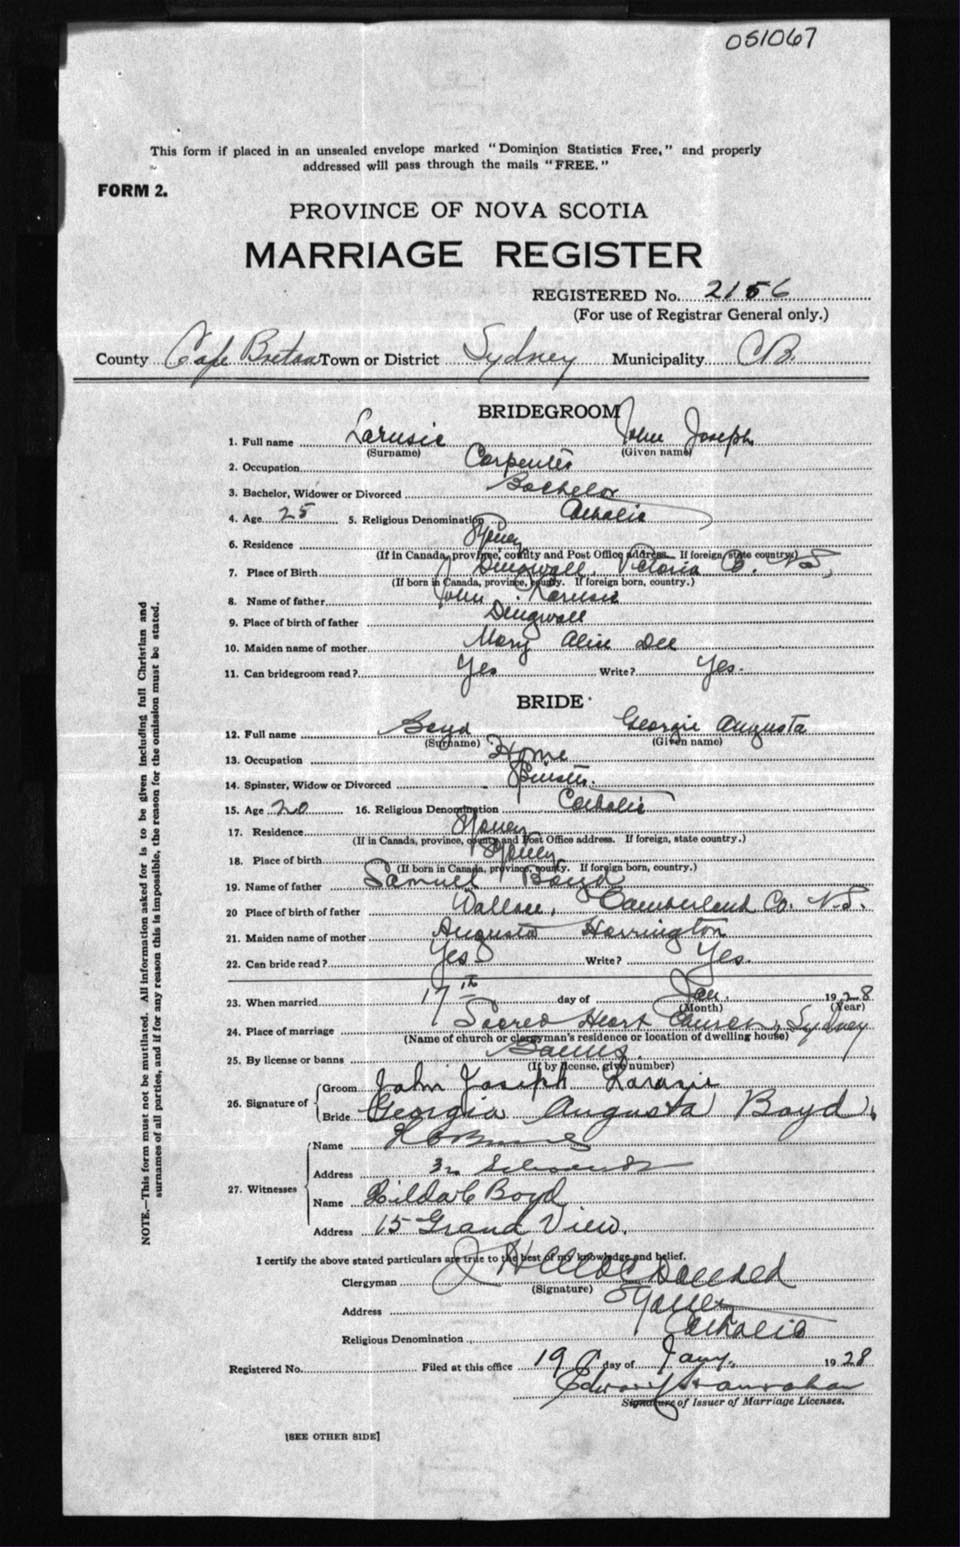 051067
This form if placed in an unsealed envelope marked "Dominion Statistics Free," and properly
addressed will pass through the mails "FREE."
FORM 2.
PROVINCE OF NOVA SCOTIA
MARRIAGE REGISTER
REGISTERED No. 2156
(For use of Registrar General only.)
County Cape Breton Town or District Sydney Municipality C.B.
BRIDEGROOM
1. Full name Larusic John Joseph
(Surname) (Given name)
2. Occupation Carpenter
3. Bachelor, Widower or Divorced Bachelor
4. Age 25 5. Religious Denomination Catholic
6. Residence Sydney
(If in Canada, province, county and Post Office address. If foreign state country.)
7. Place of Birth Dingwall, Victoria Co. N.S.
(If born in Canada, province, county. If foreign born, country.)
8. Name of father John Larusic
9. Place of birth of father Dingwall
10. Maiden name of mother Mary Alice Dee
11. Can bridegroom read? Yes Write? Yes.
BRIDE
12. Full name Boyd Georgie Augusta
(Surname) (Given name)
13. Occupation Home
14. Spinster, Widow or Divorced Spinster.
15. Age 20 16. Religious Denomination Catholic
17. Residence Sydney
(If in Canada, province, county and Post Office address. If foreign, state country.)
18. Place of birth Sydney
(If born in Canada, province, county. If foreign born, country.)
19. Name of father Samuel Boyd
20 Place of birth of father Wallace, Cumberland Co. N.S.
21. Maiden name of mother Augusta Harrington
22. Can bride read? Yes Write? Yes.
23. When married 17th day of Jan. 1928
(Month) (Year)
24. Place of marriage Sacred Heart Church, Sydney
(Name of church or clergyman's residence or location of dwelling house)
25. By license or banns Banns.
(If by license, give number)
26. Signature of
Groom John Joseph Larusic
Bride Georgia Augusta Boyd
27. Witnesses
Name
Address
Name Hilda C Boyd
Address 15 Grand View.
I certify the above stated particulars are true to the best of my knowledge and belief.
Clergyman
(Signature)
Address Sydney
Religious Denomination Catholic
Registered No. Filed at this office 19 day of Jany. 1928
Signature of Issuer of Marriage Licenses.
[SEE OTHER SIDE]
NOTE.—This form must not be mutilated. All information asked for is to be given including full Christian and
surnames of all parties, and if for any reason this is impossible, the reason for the omission must be stated.